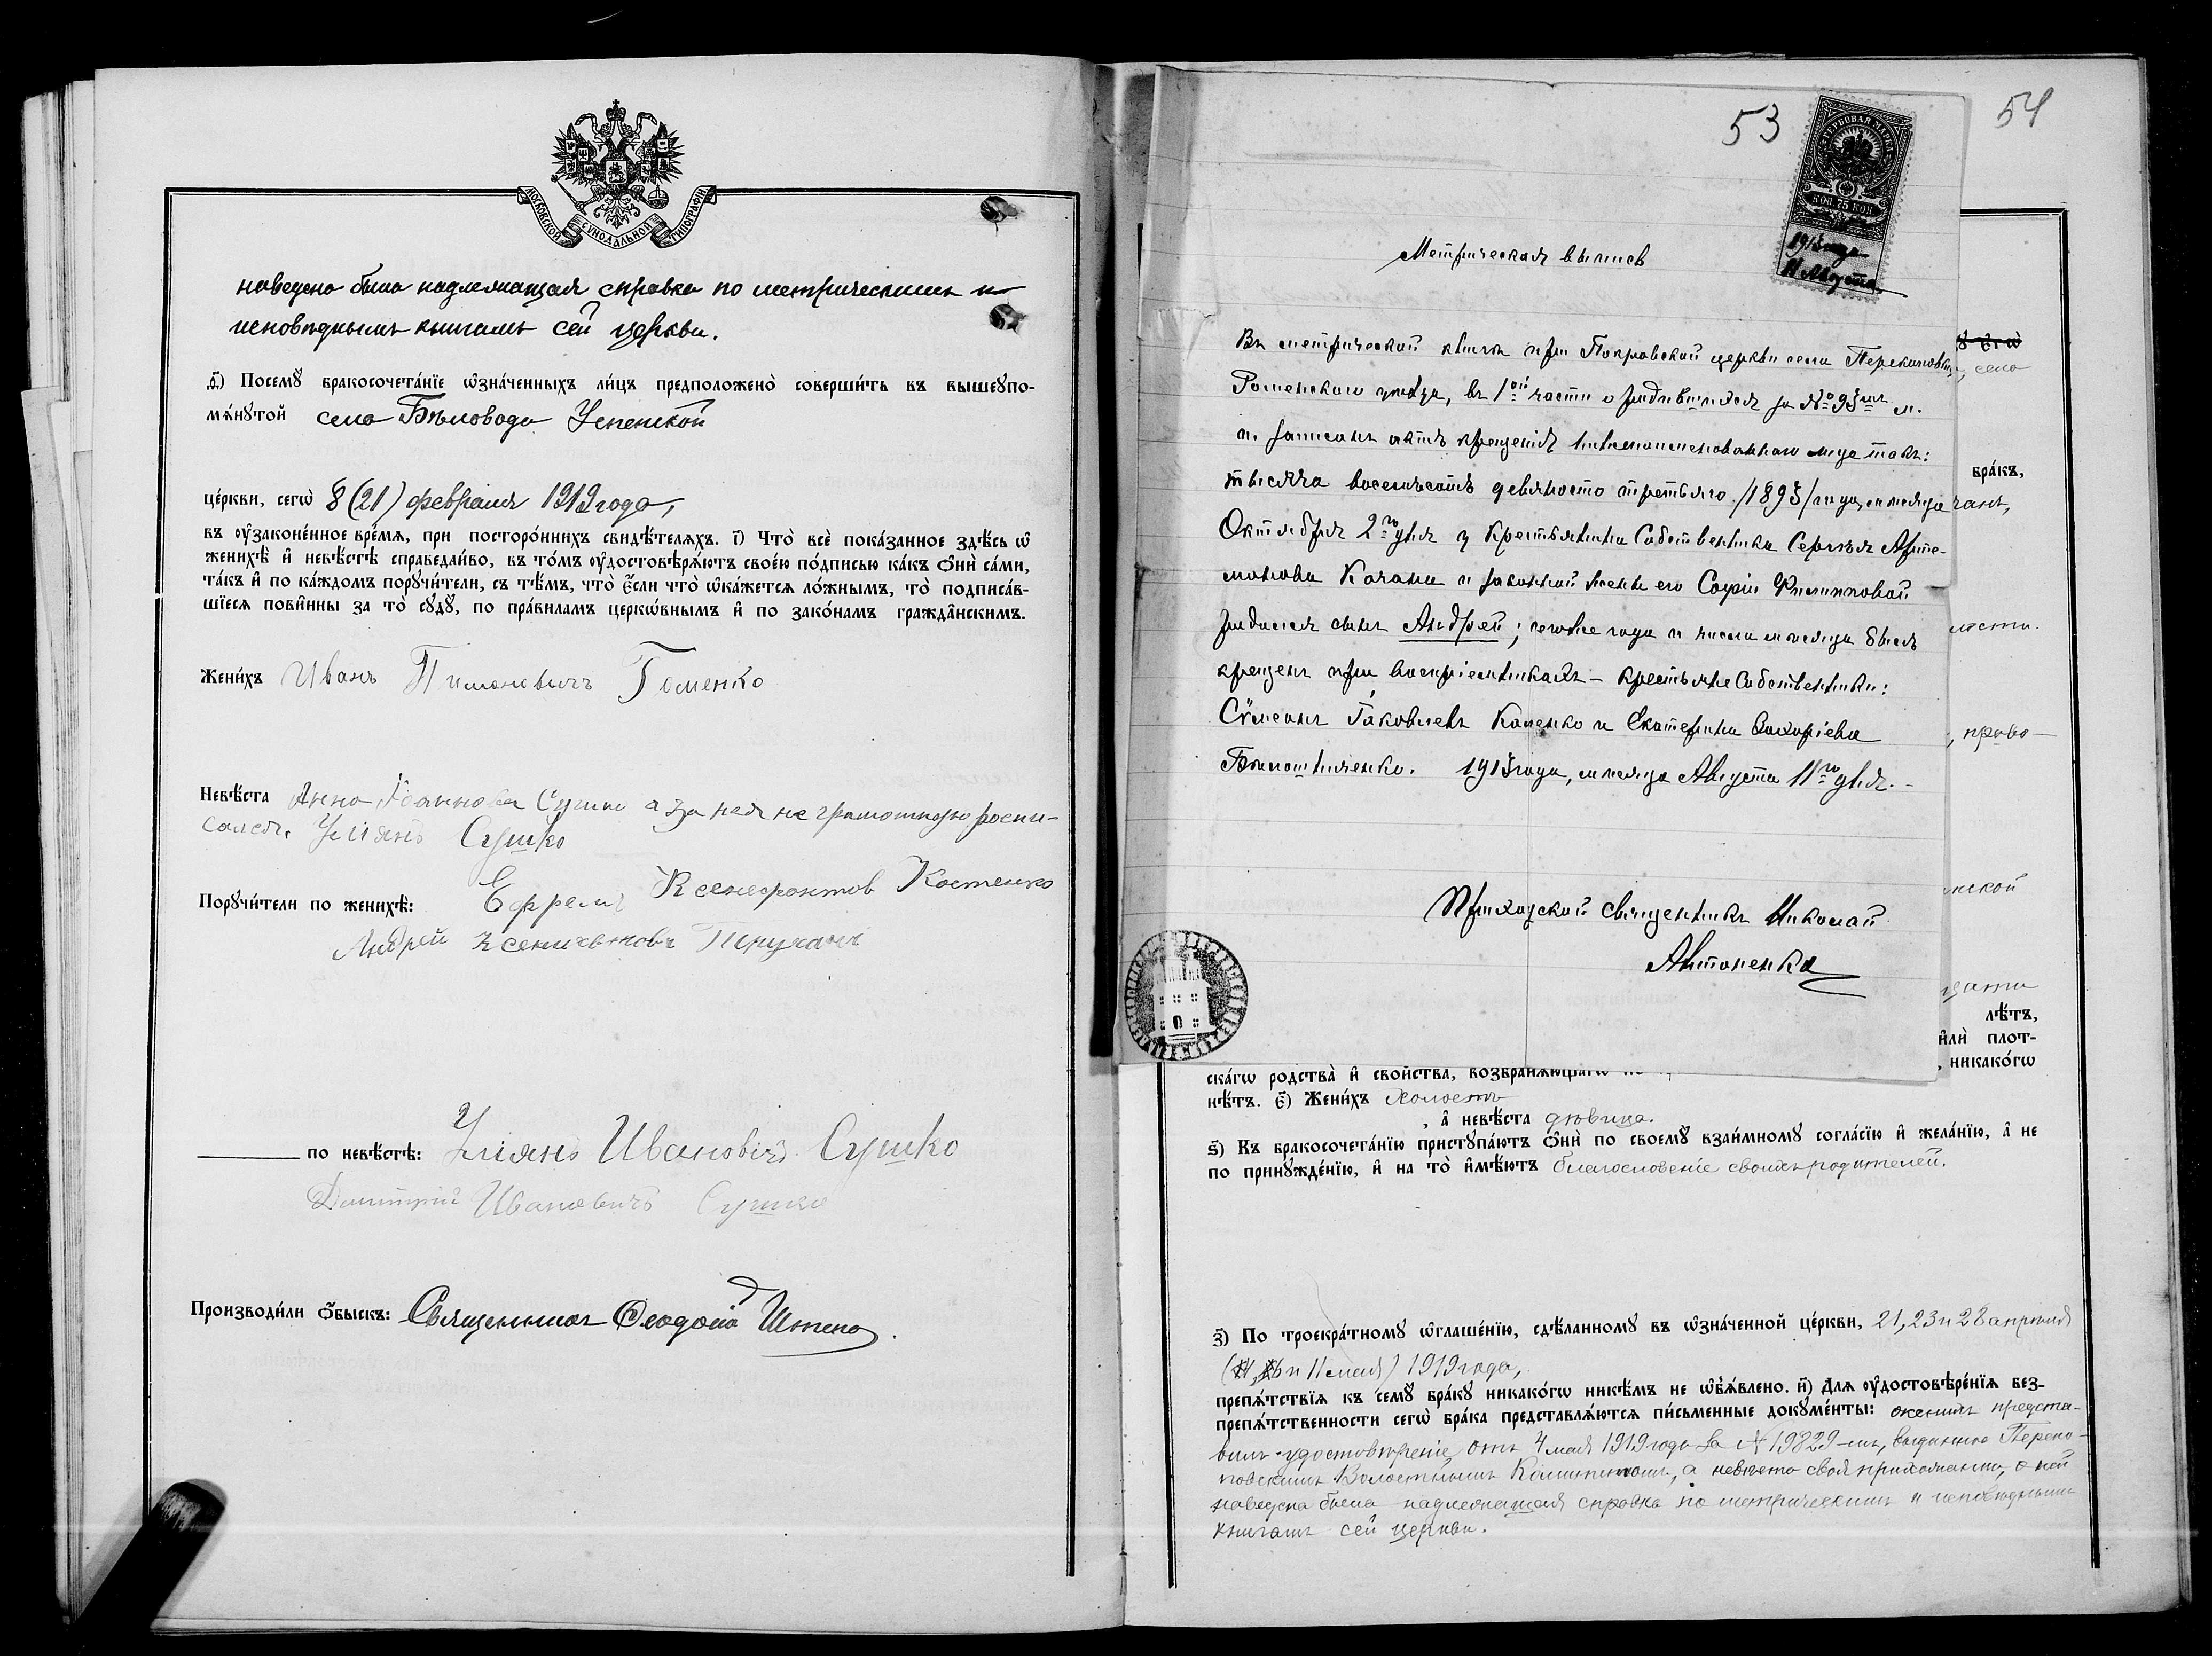 МОСКОВСКОЙ СѴНОДАЛЬНОЙ ТИПОГРАФІИ
наведена была надлежащая справка по метрическимъ и
исповѣднымъ книгамъ сей церкви.
Ѳ҃) Посемꙋ̀ бракосочета́нїе ѡ҆зна́ченныхъ ли́цъ предположено̀ соверши́ть въ вышеꙋпо-
мѧ́нꙋтой села Бѣловода Успенской
це́ркви, сегѡ̀ 8 (21) февраля 1919 года,
въ ᲂу҆законе́нное вре́мѧ, при посторо́ннихъ свидѣ́телѧхъ. І҃) Что̀ всѐ пока́занное здѣ́сь ѡ҆
женихѣ̀ и҆ невѣ́стѣ справедли́во, въ то́мъ ᲂу҆достовѣрѧ́ютъ свое́ю по́дписью ка́къ ѻ҆нѝ са́ми,
та́къ и҆ по ка́ждомъ порꙋчи́тели, съ тѣ́мъ, что̀ є҆́сли что̀ ѡ҆ка́жетсѧ ло́жнымъ, то̀ подписа́в-
шїесѧ пови́нны за то̀ сꙋдꙋ̀, по пра́виламъ церкѡ́внымъ и҆ по зако́намъ гражда́нскимъ.
Жени́хъ Иванъ Пименовичъ Гоменко
Невѣ́ста Анна Іоаннова Сушко а за нея не грамотную роспи-
салея. Уліянъ Сушко
Порꙋчи́тели по женихѣ̀: Ефремъ Ксенофонтов Костенко
Андрей
по невѣ́стѣ: Уліянъ Ивановичъ Сушко
Дмитрий Ивановичъ Сушко
Производи́ли ѻ҆́быскъ: Священникъ Ѳеодосій
53
54
ГЕРБОВАЯ МАРКА
КОП 75 КОП
1913 года
11 Августа
Метрическая выпись
Въ метрической книгѣ при Покровской церкви села Перекоповки,
Роменскаго уѣзда, въ 1ой части о родившихся за № 93мъ м.
п. записанъ актъ крещенія нижепоименованнаго лица такъ:
тысяча восемьсотъ девяносто третьяго /1893/ года, мѣсяца
Октября 2го дня у Крестьянина Собственника Сергѣя Арте-
монова Качана и законной жены его Софіи Филипповой
родился сынъ Андрей; того же года и числа и мѣсяца былъ
крещенъ при воспріемникахъ – крестьяне Собственники:
Сѵмеонъ Іаковлевъ Коненко и Екатерина Захаріева
1913 года, мѣсяца Августа 11го дня. –
Приходской священникъ Николай
Антоненко
село
бра́къ,
чанъ,
, право-
лѣ́тъ,
и҆лѝ плот-
, никако́гѡ
ска́гѡ родства̀ и҆ сво́йства,
нѣ́тъ. Є҃) Жени́хъ холостъ
, а҆ невѣ́ста дѣвица.
Ѕ҃) Къ бракосочета́нїю пристꙋпа́ютъ ѻ҆нѝ по своемꙋ̀ взаи́мномꙋ согла́сїю и҆ жела́нїю, а҆ не
по принꙋжде́нїю, и҆ на то̀ и҆мѣ́ютъ благословеніе своихъ родителей.
З҃) По троекра́тномꙋ ѡ҆глаше́нїю, сдѣ́ланномꙋ въ ѡ҆зна́ченной це́ркви, 21, 23 и 28 апрѣля
и 11 мая) 1919 года,
препѧ́тствїѧ къ семꙋ̀ бра́кꙋ никако́гѡ никѣ́мъ не ѡ҆б̾ѧ́влено. И҃) Длѧ ᲂу҆достовѣре́нїѧ без-
препѧ́тственности сегѡ̀ бра́ка представлѧ́ютсѧ пи́сьменные докꙋме́нты: женихъ предста-
вилъ удостовѣреніе, отъ 4 мая 1919 года за № 19829-мъ, выданное Переко-
повскимъ Волостнымъ Комитетомъ, а невѣста своя прихожанка, о ней
наведена была надлежащая справка по метрическимъ и исповѣднымъ
книгамъ сей церкви.